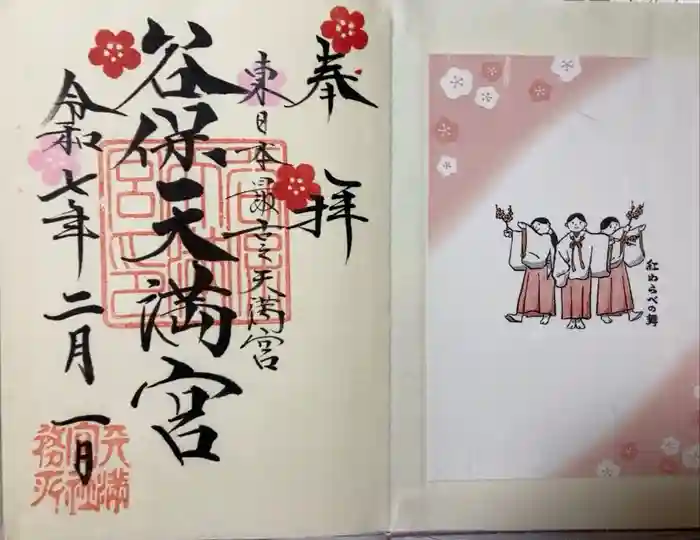 奉拝
東日本最古之天満宮
谷保天満宮
令和七年二月一日
天満
宮社
務所
紅わらべの舞